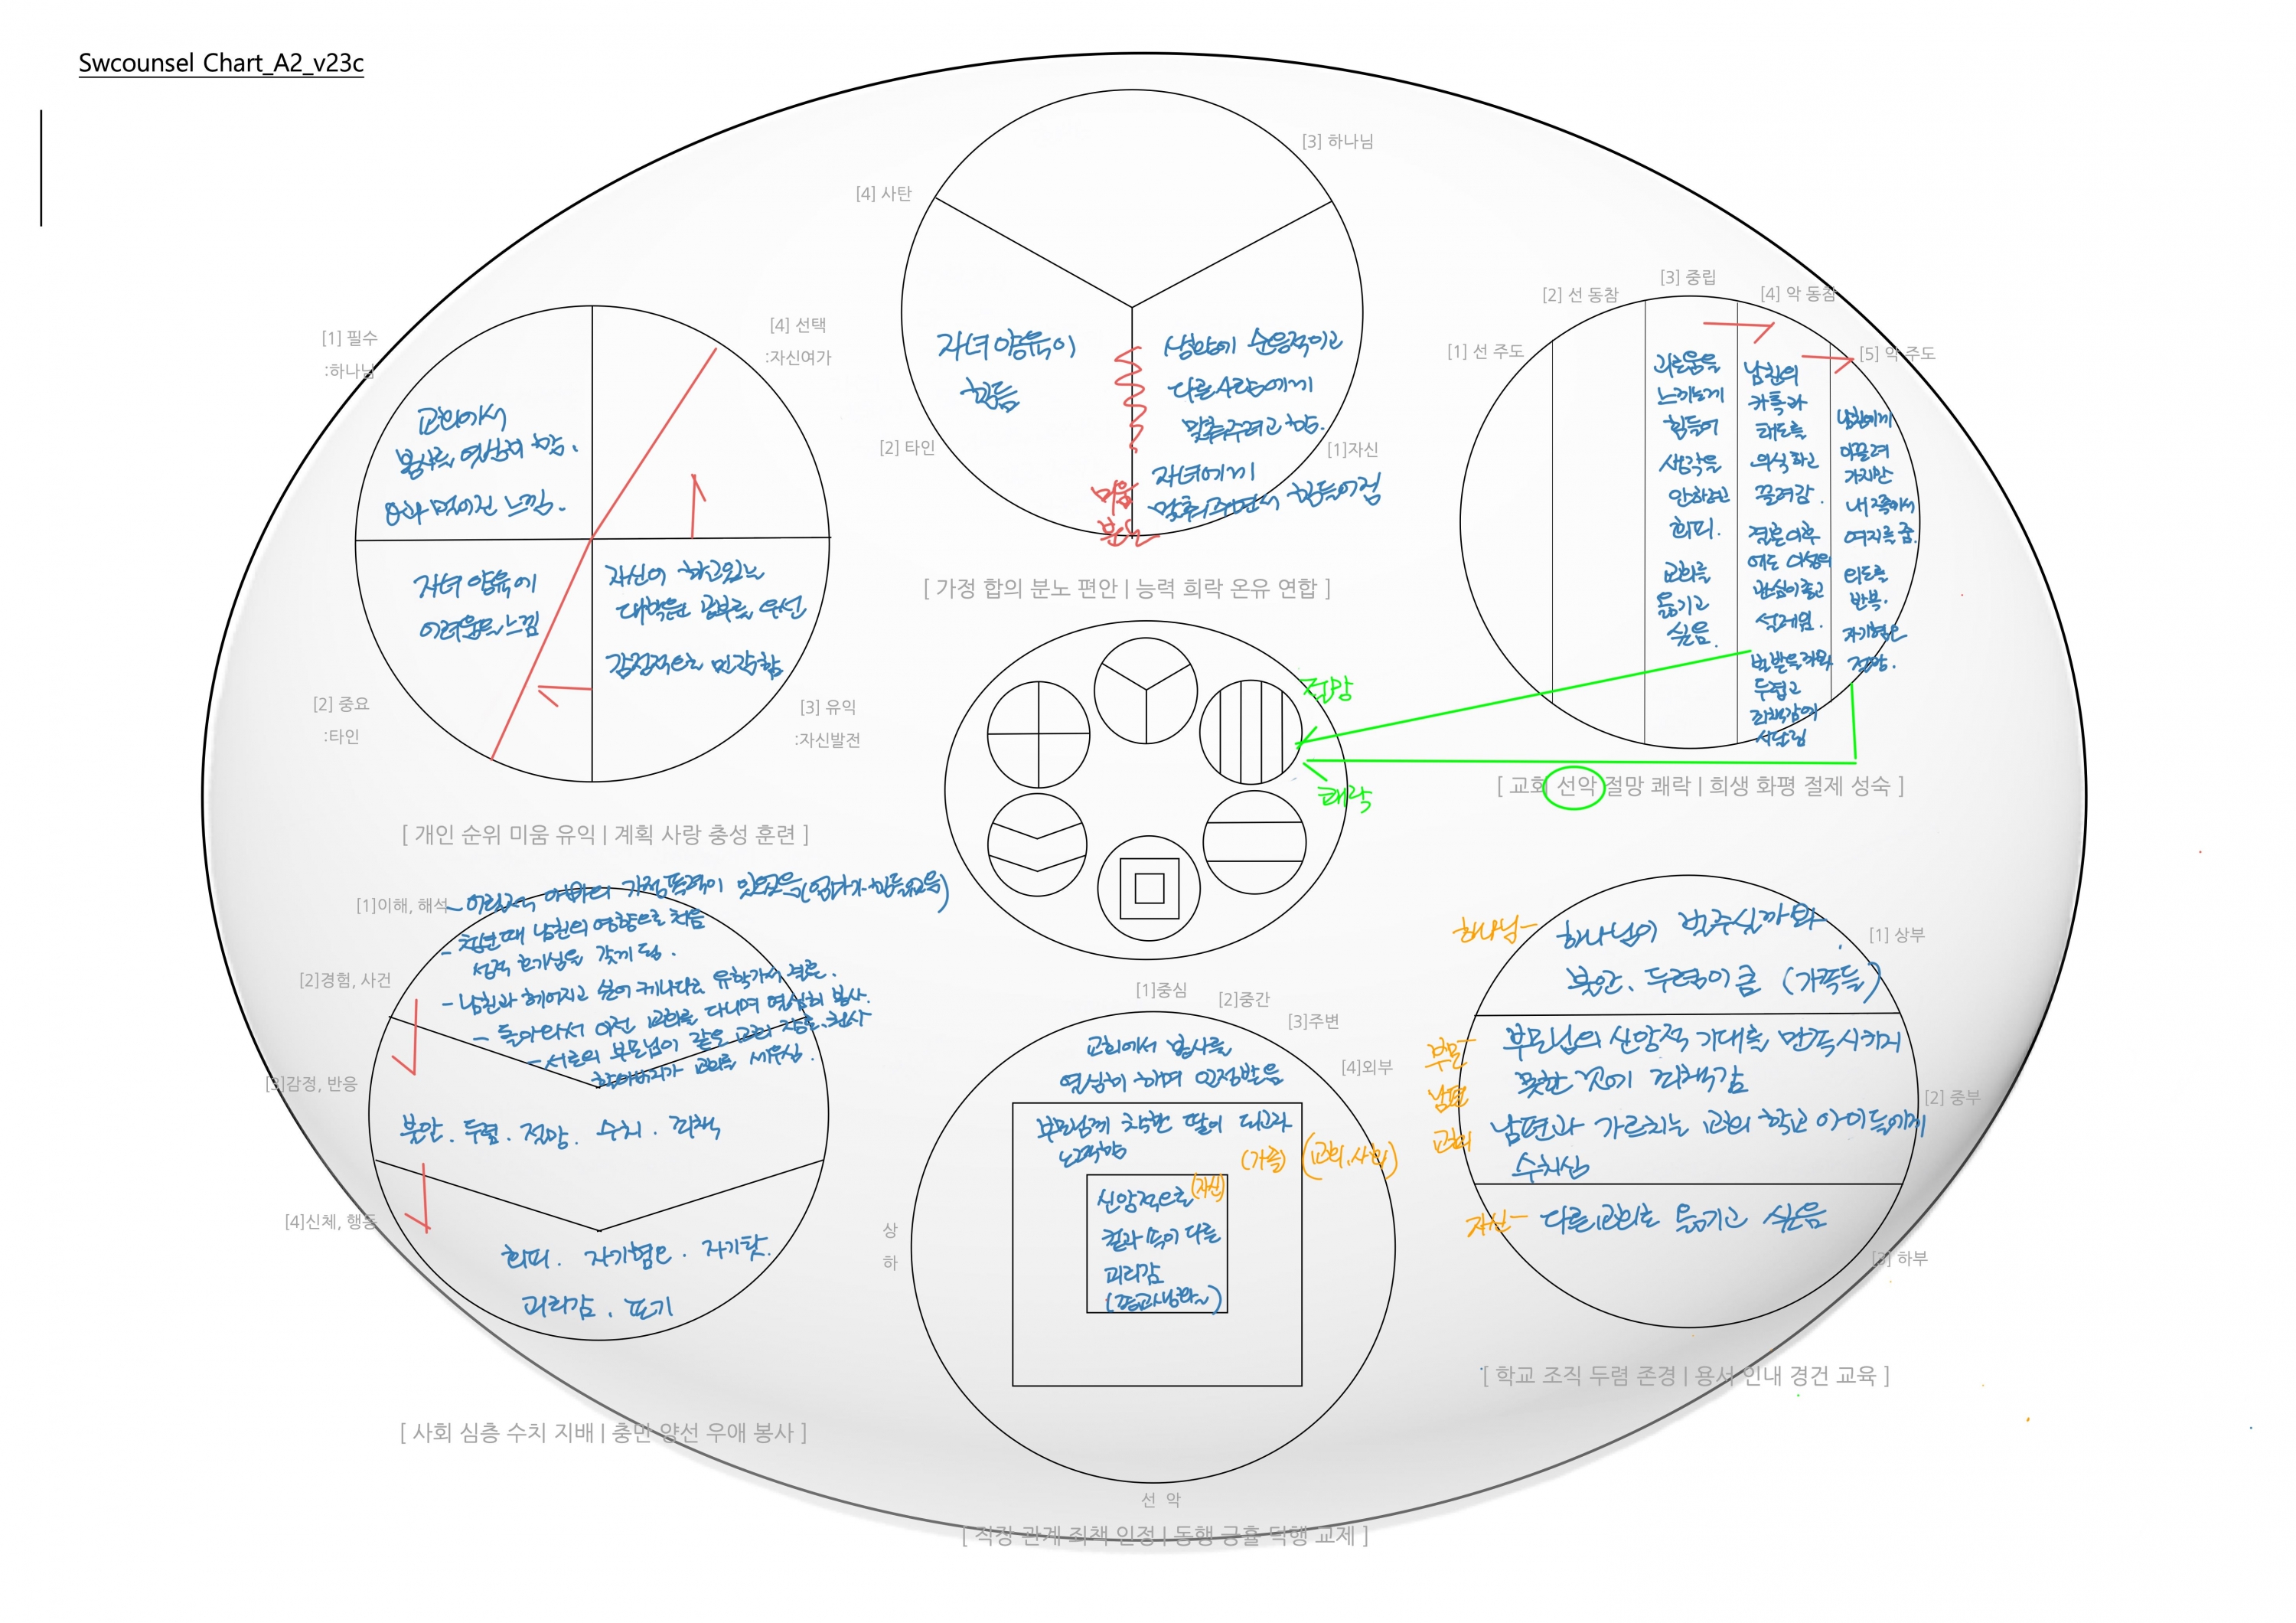 Swcounsel Chart_A2_v23c
[3] 하나님
[4] 사탄
자녀 양육이
힘듦
순응적이고
다른 사람에게
맞춰주려고 함.
자녀에게
맞춰주면서 힘들어짐
미움
분노
[2] 타인
[1]자신
[ 가정 합의 분노 편안 | 능력 희락 온유 연합 ]
[1] 필수
:하나님
[4] 선택
:자신여가
교회에서
봉사를 열심히 함.
멀어진 느낌.
자녀 양육에
어려움을 느낌
자신이 하고있는
대학원 공부를 우선
감정적으로 민감함
[2] 중요
:타인
[3] 유익
:자신발전
[ 개인 순위 미움 유익 | 계획 사랑 충성 훈련 ]
[1] 선 주도
[2] 선 동참
[3] 중립
[4] 악 동참
[5] 악 주도
괴로움을
느끼는게
힘들어
생각을
안하려고
회피.
교회를
옮기고
싶음.
남친의
카톡과
태도를
의식하고
끌려감.
결혼이후
에도 이성의
관심이 좋고
설레임.
벌받을까봐
두렵고
죄책감에
시달림
남친에게
이끌려
가지만
내쪽에서
여지를 줌.
의도를
반복.
자기혐오
절망.
절망
쾌락
[ 교회 선악 절망 쾌락 | 희생 화평 절제 성숙 ]
[1]이해, 해석
[2]경험, 사건
[3]감정, 반응
[4]신체, 행동
- 어린시절 아빠의 가정폭력이 있었음(엄마가 힘들었음)
- 청년때 남친의 영향으로 처음
성적 호기심을 갖게 됨.
- 남친과 헤어지고 싶어 캐나다로 유학가서 결혼.
- 돌아와서 이전 교회를 다니며 열심히 봉사.
- 서로의 부모님이 같은 교회 장로.권사
할아버지가 교회를 세우심.
불안. 두렴. 절망. 수치. 죄책
회피. 자기혐오. 자기탓.
괴리감. 포기
[ 사회 심층 수치 지배 | 충만 양선 우애 봉사 ]
[1]중심
[2]중간
[3]주변
[4]외부
교회에서 봉사를
열심히 하며 인정받음
부모님께 착한 딸이 되고자
노력함
(가족)
(교회,사회)
신앙적으로
(자신)
겉과 속이 다름
괴리감
상
하
선 악
[ 직장 관계 죄책 인정 | 동행 긍휼 덕행 교제 ]
하나님-
하나님이 벌주실까봐
불안. 두려움이 큼 (가족들)
[1] 상부
부모-
남편
교회
부모님의 신앙적 기대를 만족시키지
못한 것에 죄책감
남편과 가르치는 교회 학교 아이들에게
수치심
[2] 중부
자신-
다른교회로 옮기고 싶음
[3] 하부
[ 학교 조직 두렴 존경 | 용서 인내 경건 교육 ]